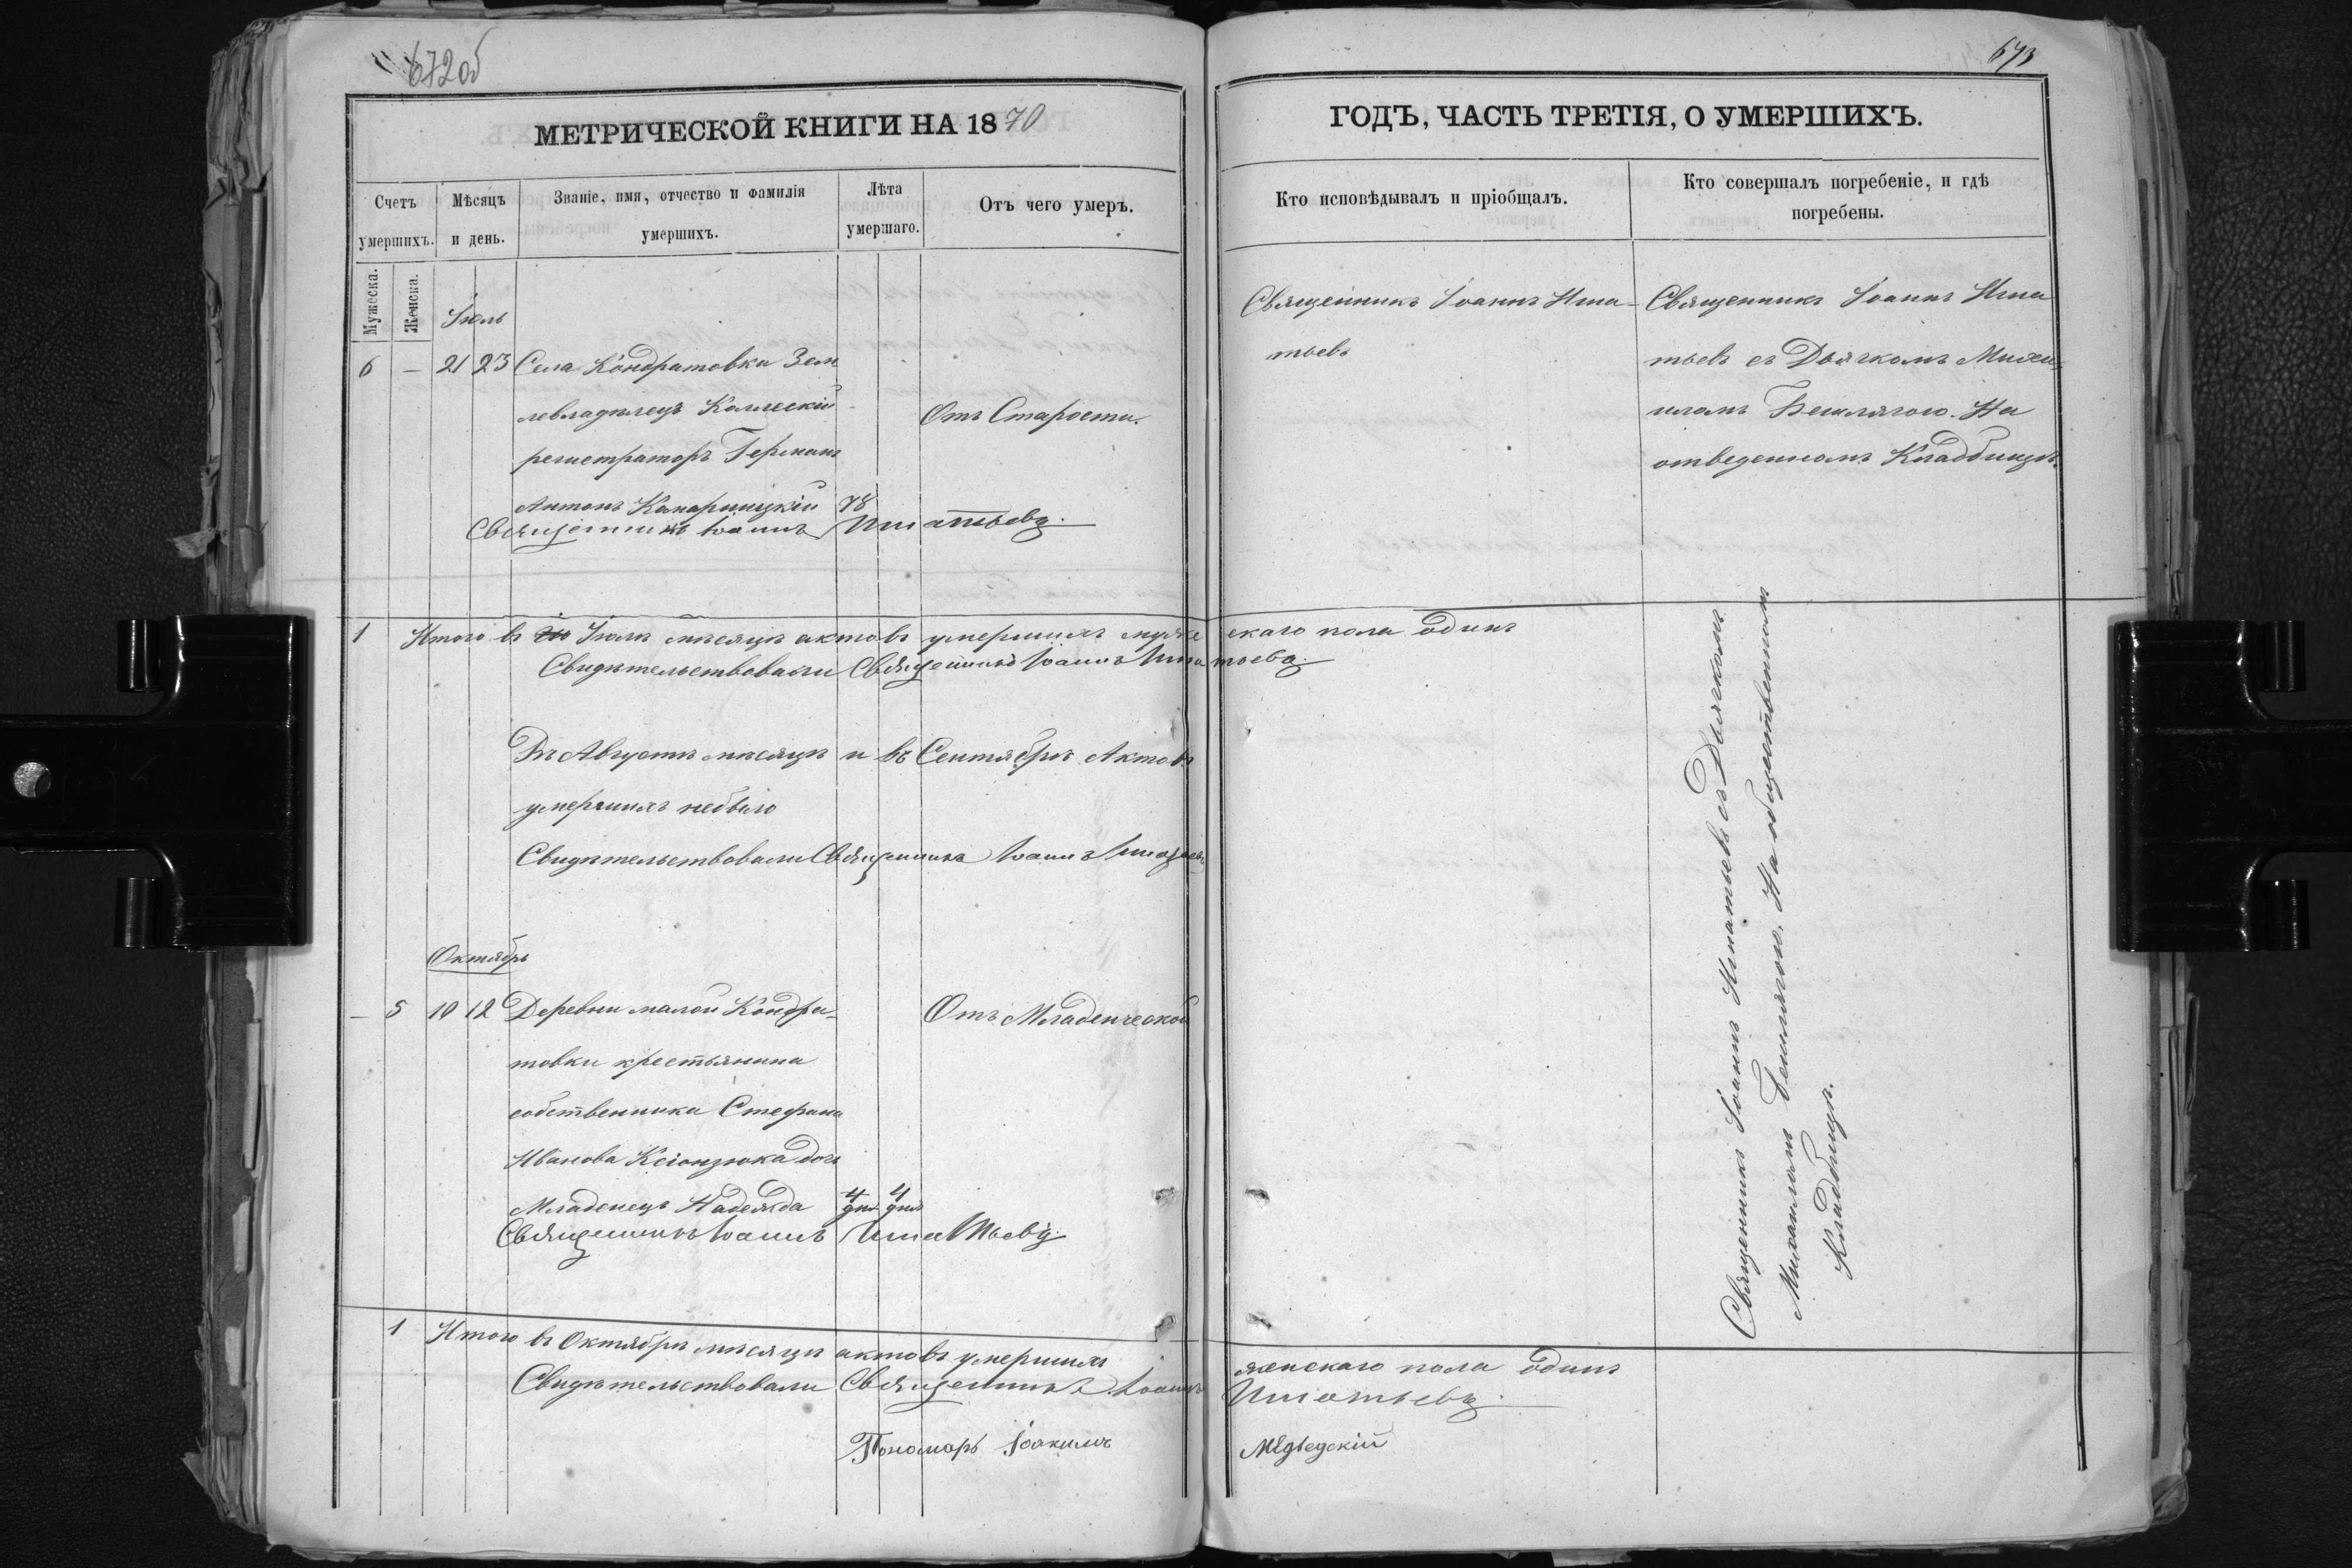 672об
МЕТРИЧЕСКОЙ КНИГИ НА 1870
Счетъ умершихъ.
Мѣсяцъ и день.
Званіе, имя, отчество и фамилія умершихъ.
Лѣта умершаго.
Отъ чего умеръ.
Мужеска.
Женска.
Іюль
6 — 21 23 Села Кондратовки Зем
левладѣлецъ Коллескій
Отъ Старости.
регистраторъ Германъ
Антонъ 78
Священникъ Іоаннъ Игнатьевъ.
1 Итого въ Іюлѣ мѣсяцѣ актовъ умершихъ мужескаго пола одинъ
Свидѣтельствовали Священникъ Іоаннъ Игнатьевъ.
Въ Августѣ мѣсяцѣ и въ Сентябрѣ Актовъ
умершихъ небыло
Свидѣтельствовали Священникъ Іоаннъ Игнатьевъ
Октябрь
— 5 10 12 Деревни малой Кондра-
Отъ Младенческой
товки крестьянина
собственника Стефана
Иванова дочь
Младенецъ Надежда 4 дня 4 дня
Священникъ Іоаннъ Игнатьевъ
1 Итого въ Октябрѣ мѣсяцѣ актовъ умершихъ женскаго пола одинъ
Свидѣтельствовали Священникъ Іоаннъ Игнатьевъ.
Пономарь Іоакимъ Мѣдведскій
673
ГОДЪ, ЧАСТЬ ТРЕТІЯ, О УМЕРШИХЪ.
Кто исповѣдывалъ и пріобщалъ.
Кто совершалъ погребеніе, и гдѣ
погребены.
Священникъ Іоаннъ Игна-
тьевъ
Священникъ Іоаннъ Игна
тьевъ съ Дьячкомъ Михаи
ломъ На
отведенномъ Кладбищѣ.
Священникъ Іоаннъ Игнатьевъ съ Дьячкомъ
Михаиломъ На общественномъ
Кладбищѣ.